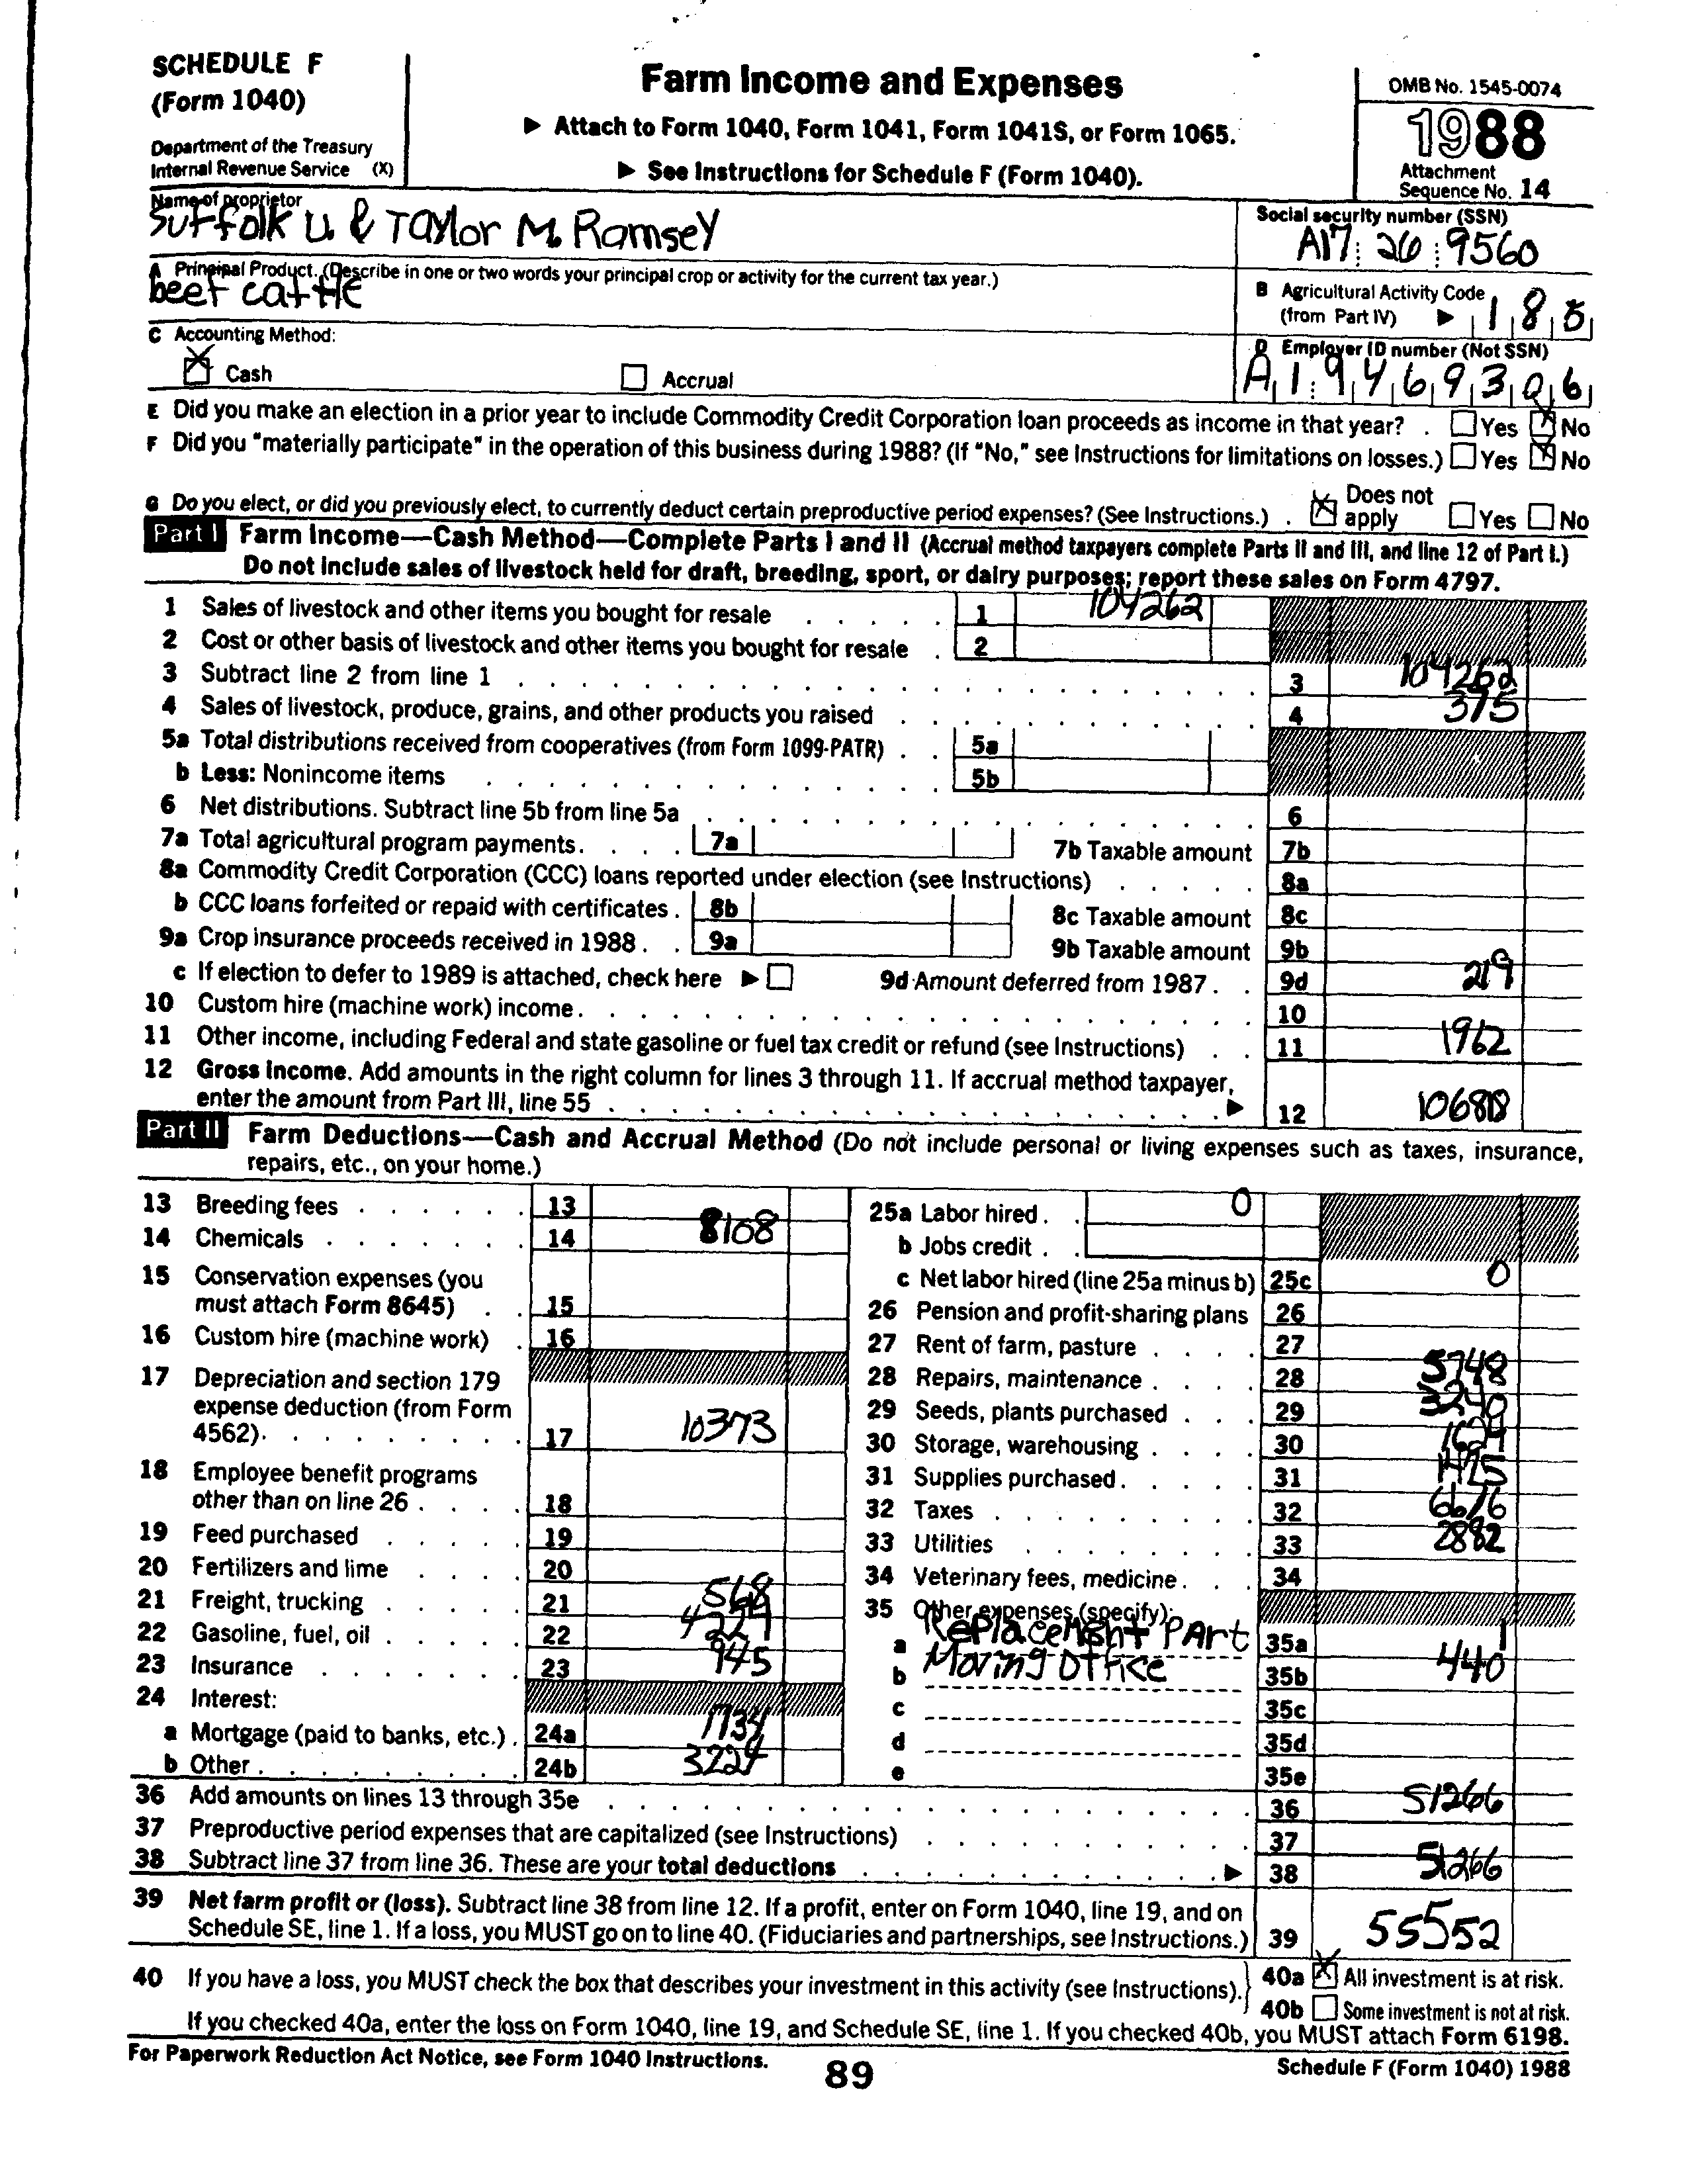 SCHEDULE F
(Form 1040)
Department of the Treasury
Internal Revenue Service (X)
Farm Income and Expenses
▶ Attach to Form 1040, Form 1041, Form 1041S, or Form 1065.
▶ See Instructions for Schedule F (Form 1040).
OMB No. 1545-0074
1988
Attachment
Sequence No. 14
Name of proprietor
Suffolk U. & Taylor M. Ramsey
Social security number (SSN)
A17 26 9560
A Principal Product. (Describe in one or two words your principal crop or activity for the current tax year.)
beef cattle
B Agricultural Activity Code
(from Part IV) ▶ 1 8
C Accounting Method:
Cash Accrual
D Employer ID number (Not SSN)
A 1 9 4 6 9 3 0 6
E Did you make an election in a prior year to include Commodity Credit Corporation loan proceeds as income in that year? . Yes No
F Did you "materially participate" in the operation of this business during 1988? (If "No," see Instructions for limitations on losses.) Yes No
G Do you elect, or did you previously elect, to currently deduct certain preproductive period expenses? (See Instructions.) . Does not apply Yes No
Part I Farm Income—Cash Method—Complete Parts I and II (Accrual method taxpayers complete Parts II and III, and line 12 of Part I.)
Do not include sales of livestock held for draft, breeding, sport, or dairy purposes; report these sales on Form 4797.
1 Sales of livestock and other items you bought for resale 1 104262
2 Cost or other basis of livestock and other items you bought for resale 2
3 Subtract line 2 from line 1 3 104262
4 Sales of livestock, produce, grains, and other products you raised 4 375
5a Total distributions received from cooperatives (from Form 1099-PATR) 5a
b Less: Nonincome items 5b
6 Net distributions. Subtract line 5b from line 5a 6
7a Total agricultural program payments. 7a 7b Taxable amount 7b
8a Commodity Credit Corporation (CCC) loans reported under election (see Instructions) 8a
b CCC loans forfeited or repaid with certificates . 8b 8c Taxable amount 8c
9a Crop insurance proceeds received in 1988 . 9a 9b Taxable amount 9b
c If election to defer to 1989 is attached, check here ▶ 9d Amount deferred from 1987 . 9d 219
10 Custom hire (machine work) income. 10
11 Other income, including Federal and state gasoline or fuel tax credit or refund (see Instructions) 11 1962
12 Gross Income. Add amounts in the right column for lines 3 through 11. If accrual method taxpayer,
enter the amount from Part III, line 55 ▶ 12 106818
Part II Farm Deductions—Cash and Accrual Method (Do not include personal or living expenses such as taxes, insurance,
repairs, etc., on your home.)
13 Breeding fees 13
14 Chemicals 14 8108
15 Conservation expenses (you
must attach Form 8645) 15
16 Custom hire (machine work) 16
17 Depreciation and section 179
expense deduction (from Form
4562) 17 10373
18 Employee benefit programs
other than on line 26 18
19 Feed purchased 19
20 Fertilizers and lime 20
21 Freight, trucking 21 568
22 Gasoline, fuel, oil 22 4229
23 Insurance 23 945
24 Interest:
a Mortgage (paid to banks, etc.) 24a 1734
b Other 24b 3224
25a Labor hired 0
b Jobs credit
c Net labor hired (line 25a minus b) 25c 0
26 Pension and profit-sharing plans 26
27 Rent of farm, pasture 27
28 Repairs, maintenance 28 5748
29 Seeds, plants purchased 29 3240
30 Storage, warehousing 30
31 Supplies purchased 31
32 Taxes 32 6676
33 Utilities 33 2882
34 Veterinary fees, medicine 34
35 Other expenses (specify):
a Replacement Part 35a 1
b Moving Office 35b 440
c 35c
d 35d
e 35e
36 Add amounts on lines 13 through 35e 36 51266
37 Preproductive period expenses that are capitalized (see Instructions) 37
38 Subtract line 37 from line 36. These are your total deductions ▶ 38 51266
39 Net farm profit or (loss). Subtract line 38 from line 12. If a profit, enter on Form 1040, line 19, and on
Schedule SE, line 1. If a loss, you MUST go on to line 40. (Fiduciaries and partnerships, see Instructions.) 39 55552
40 If you have a loss, you MUST check the box that describes your investment in this activity (see Instructions). 40a All investment is at risk.
40b Some investment is not at risk.
If you checked 40a, enter the loss on Form 1040, line 19, and Schedule SE, line 1. If you checked 40b, you MUST attach Form 6198.
For Paperwork Reduction Act Notice, see Form 1040 Instructions.
89
Schedule F (Form 1040) 1988